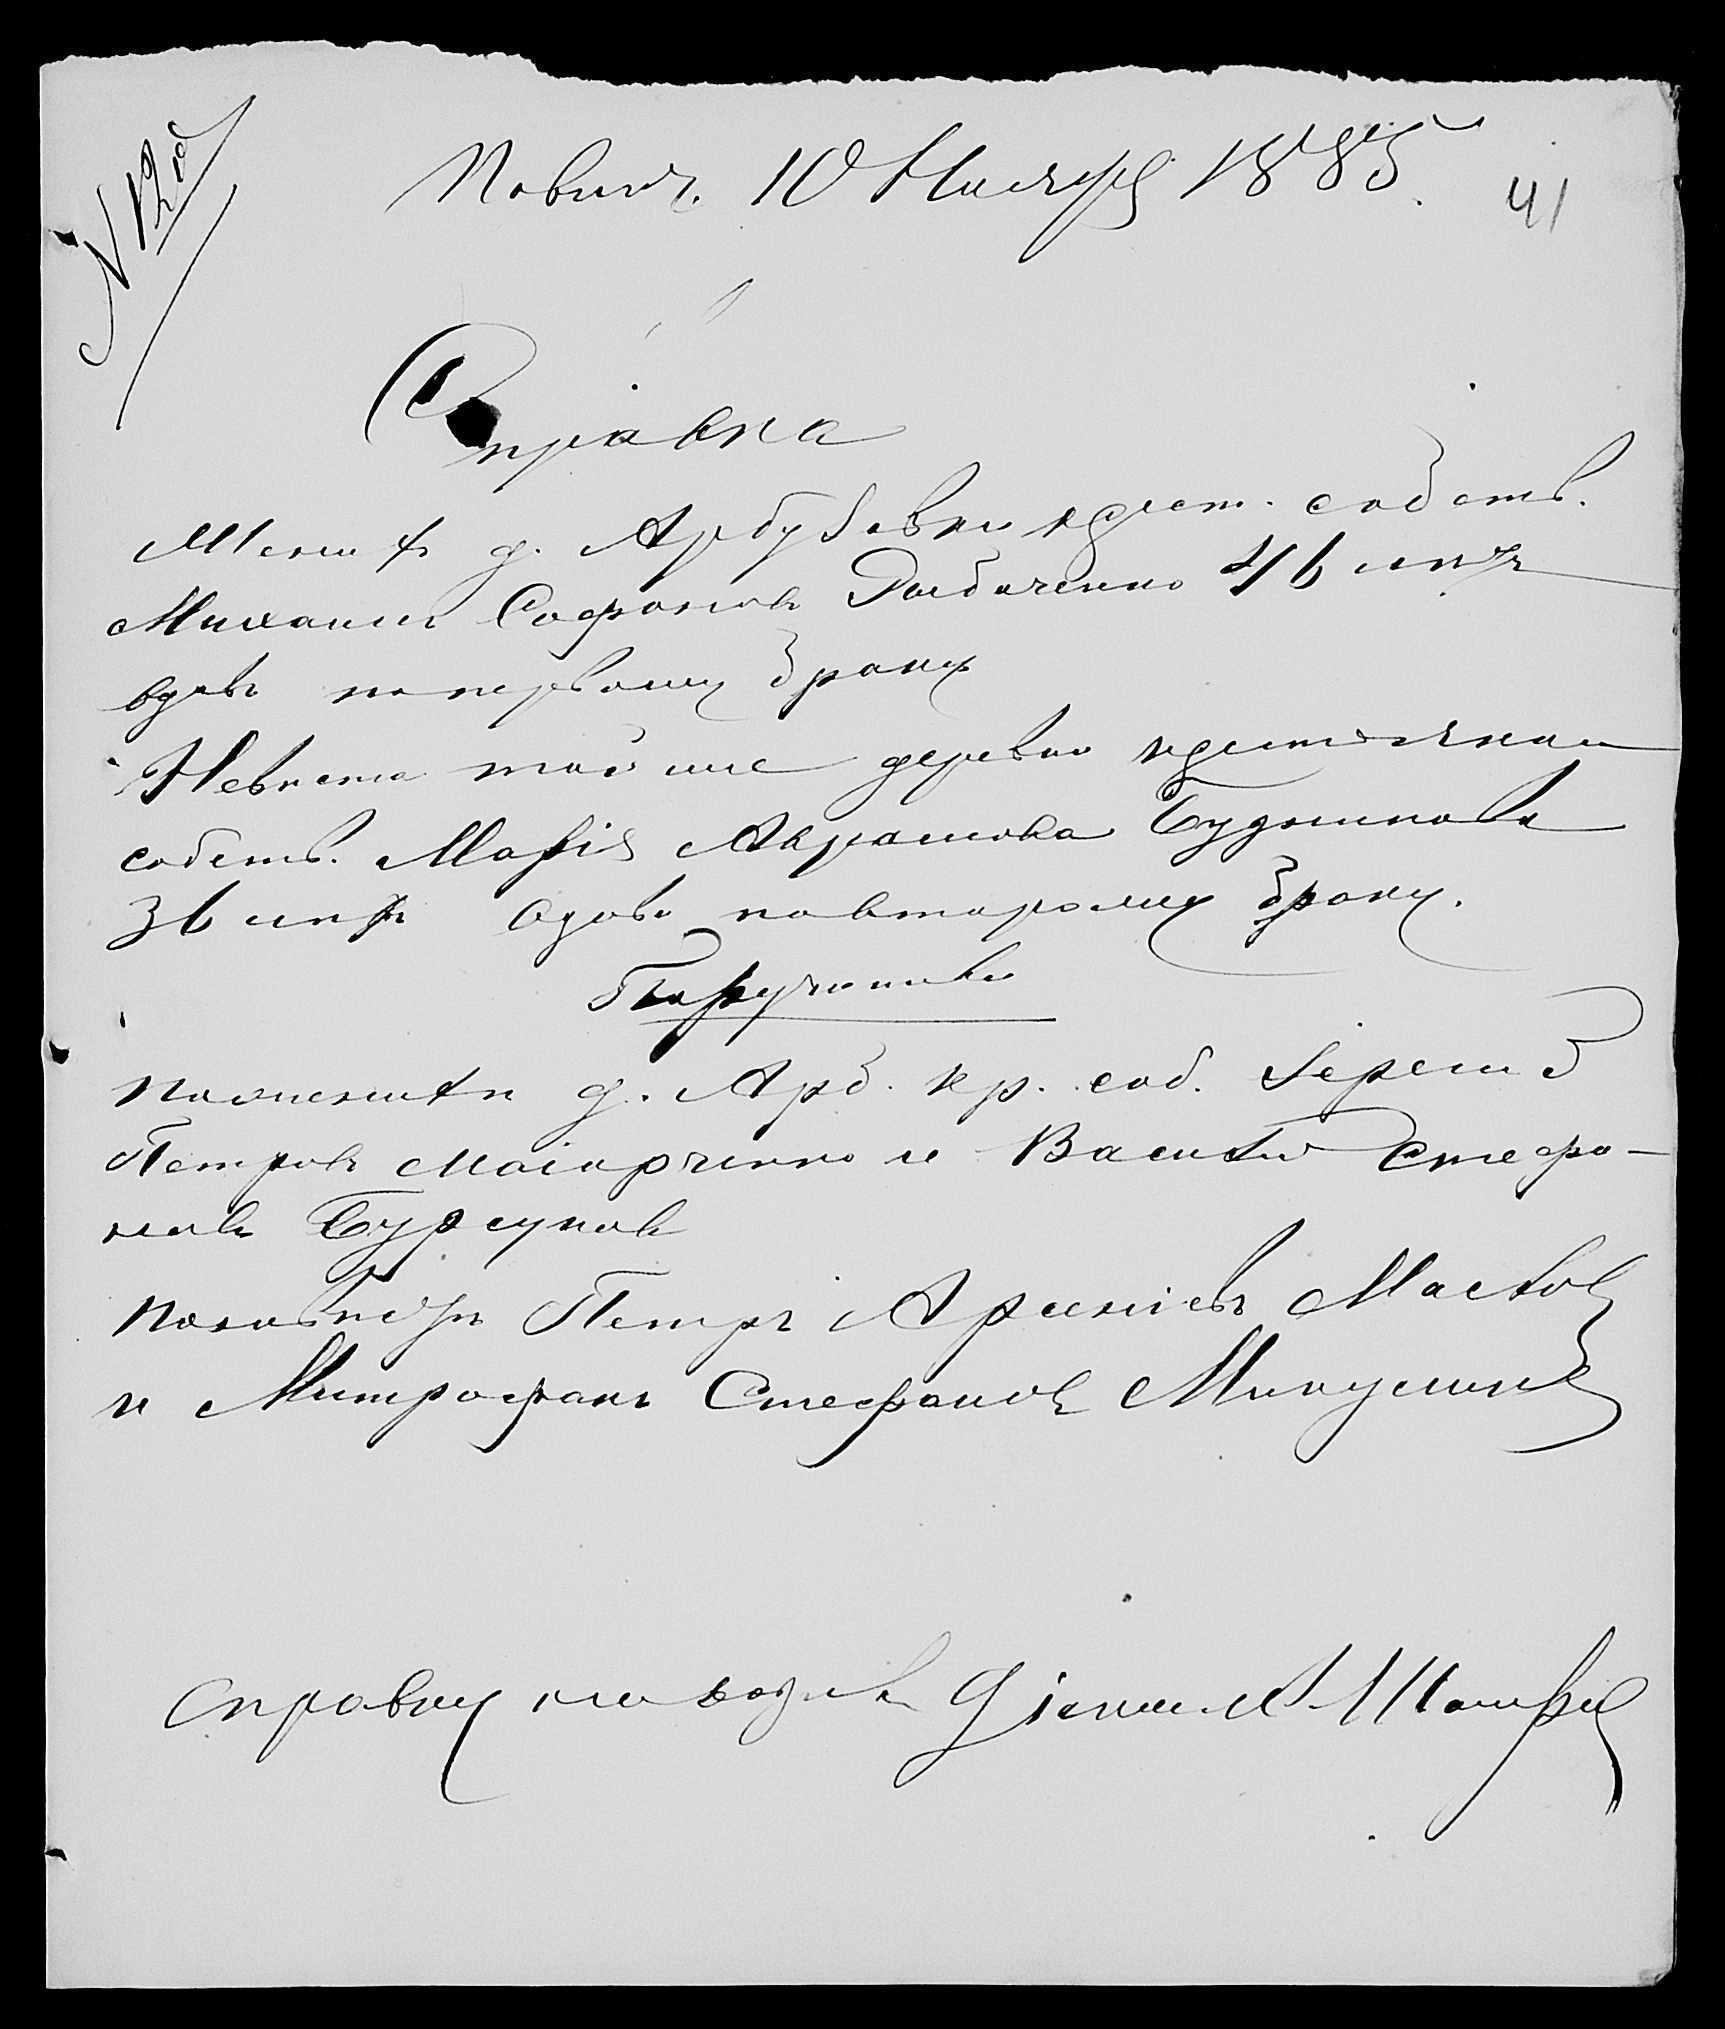 N 12
Повин. 10 Ноября 1885. 41
Справка
Жених д. Арбузовки крест. собств.
Михаилъ Софоновъ Рыбаченко 46 летъ
вдовъ по первому браку
Невѣста той же деревни крестьянка
собств. Марія Аврамова Будникова
36 летъ вдова по второму браку.
Поручители
По женихѣ д. Арб. кр. соб. Іеремій
Петровъ и Василій Стефа-
новъ Бурсуковъ
по невѣстѣ Петръ Арсеніевъ Маслов
и Митрофанъ Стефановъ Микулинъ
Справку наводилъ Діаконъ